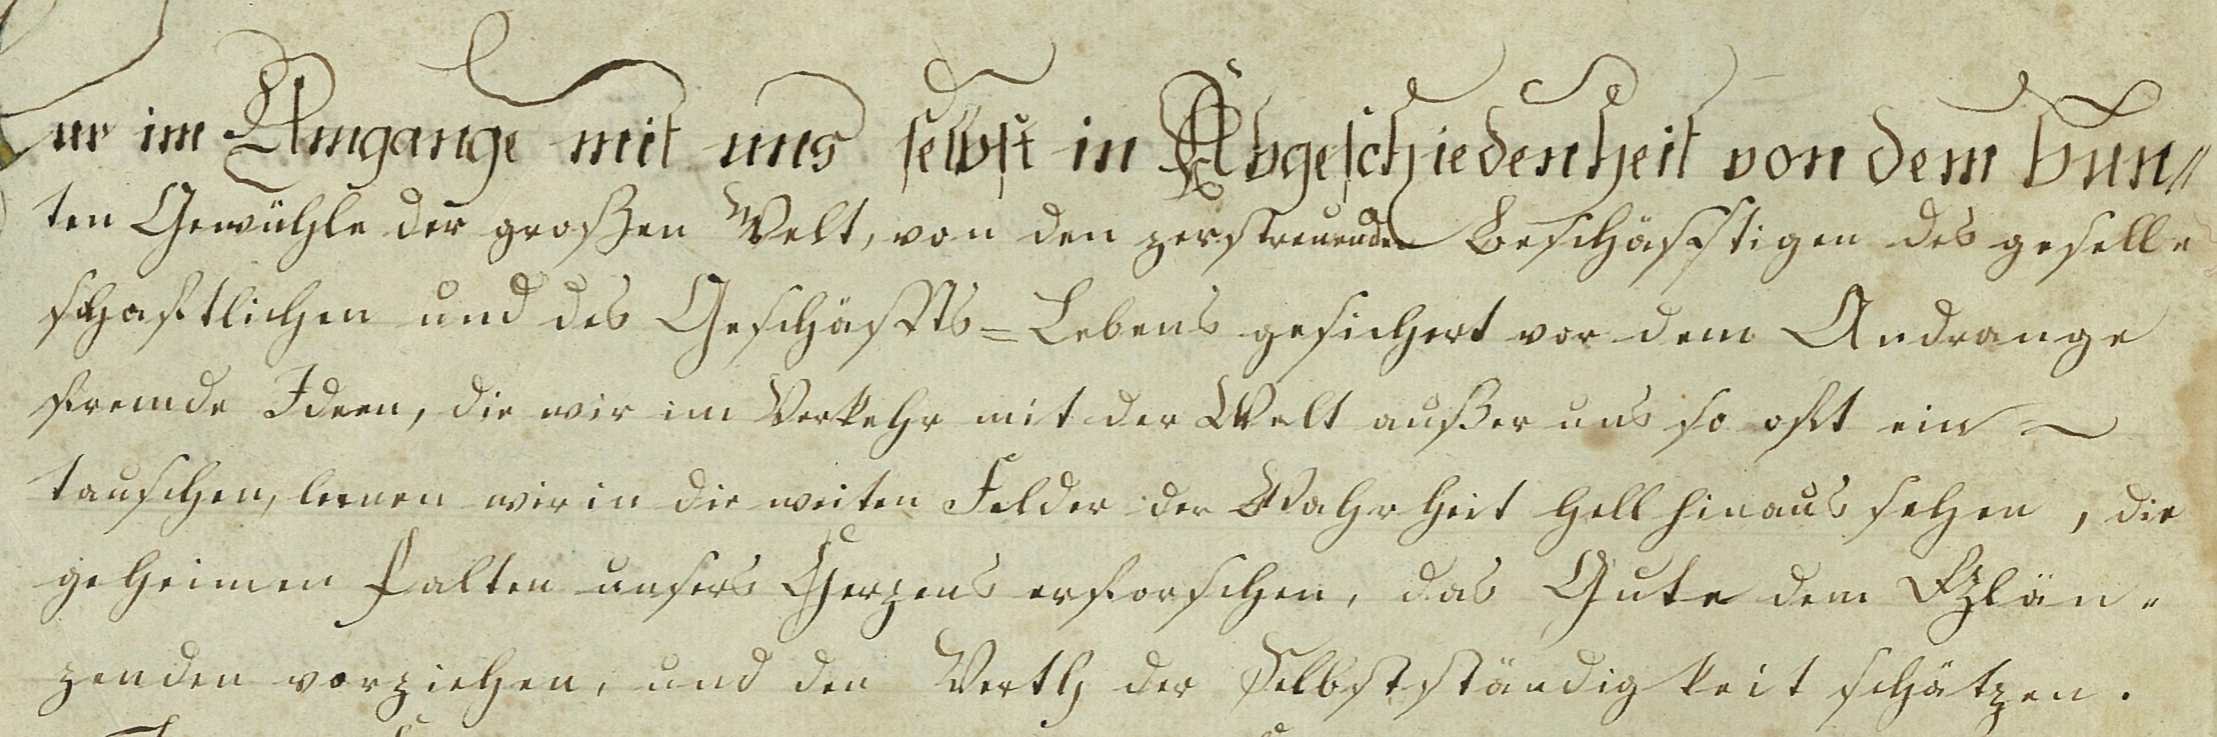 ur im Umgange mit uns selbst in Abgeschiedenheit von dem bun//
ten Gewühle der großen Welt, von den zerstreuenden Beschäfftigen des gesell-
schaftlichen und des Geschäffts=Lebens gesichert vor dem Andrange
fremde Ideen, die wir im Verkehr mit der Welt außer uns so oft ein ~
tauschen, lernen wir in die weiten Felder der Wahrheit hell hinaus sehen, die
geheimen Falten unsers Herzens erforschen, das Gute dem Glän-
zenden vorziehen, und den Werth der Selbstständigkeit schätzen.